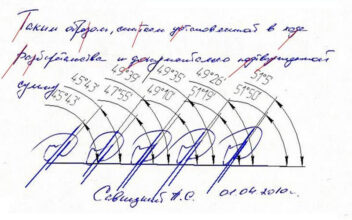 Таким образом, считаем установленной в ходе
разбирательства и документально подтвержденной
сумму
45°43' 49°39' 49°35' 49°26' 51°5'
45°43' 47°55' 49°10' 51°19' 51°50'
Савицкий А.С. 01.04.2010г.